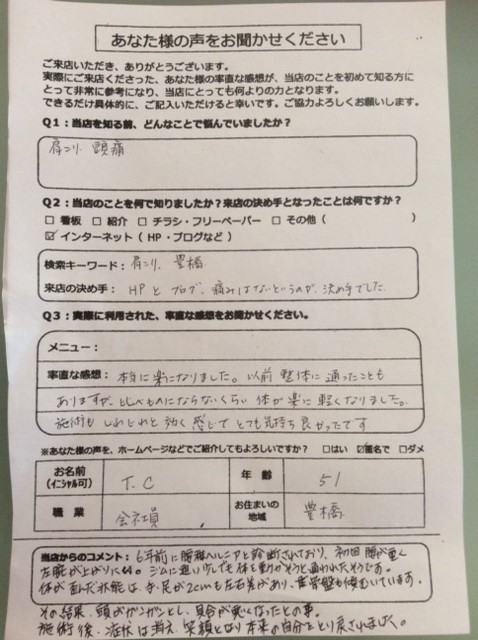 あなた様の声をお聞かせください
ご来店いただき、ありがとうございます。
実際にご来店くださった、あなた様の率直な感想が、当店のことを初めて知る方に
とって非常に参考になり、当店にとっても何よりの力となります。
できるだけ具体的に、ご記入いただけると幸いです。ご協力よろしくお願いします。
Q1：当店を知る前、どんなことで悩んでいましたか？
肩こり、頭痛
Q2：当店のことを何で知りましたか？来店の決め手となったことは何ですか？
□ 看板 □ 紹介 □ チラシ・フリーペーパー □ その他（ ）
☑ インターネット（HP・ブログなど）
検索キーワード：肩こり、豊橋
来店の決め手： HPとブログ、痛みはないというのが、決め手でした。
Q3：実際に利用された、率直な感想をお聞かせください。
メニュー：
率直な感想： 本当に楽になりました。以前 整体に通ったことも
ありますが、比べものにならないくらい 体が楽に軽くなりました。
施術も じわじわと効く感じで とても気持ち良かったです
※あなた様の声を、ホームページなどでご紹介してもよろしいですか？ □はい ☑匿名で □ダメ
お名前 （イニシャル可） T.C 年 齢 51
職 業 会社員 お住まいの地域 豊橋
当店からのコメント：6年前に腰椎ヘルニアと診断されており、初回 腰が重く
左腕が上がりにくい。ジムに通い少しでも体を動かそうと通われたそうです。
体が歪んだ状態は、手・足が2cmも左右差があり、背骨盤も傾むいています。
その結果、頭がガンガンとし、具合が悪くなったとの事。
施術後、症状は消え、笑顔となり本来の自分をとり戻されました。